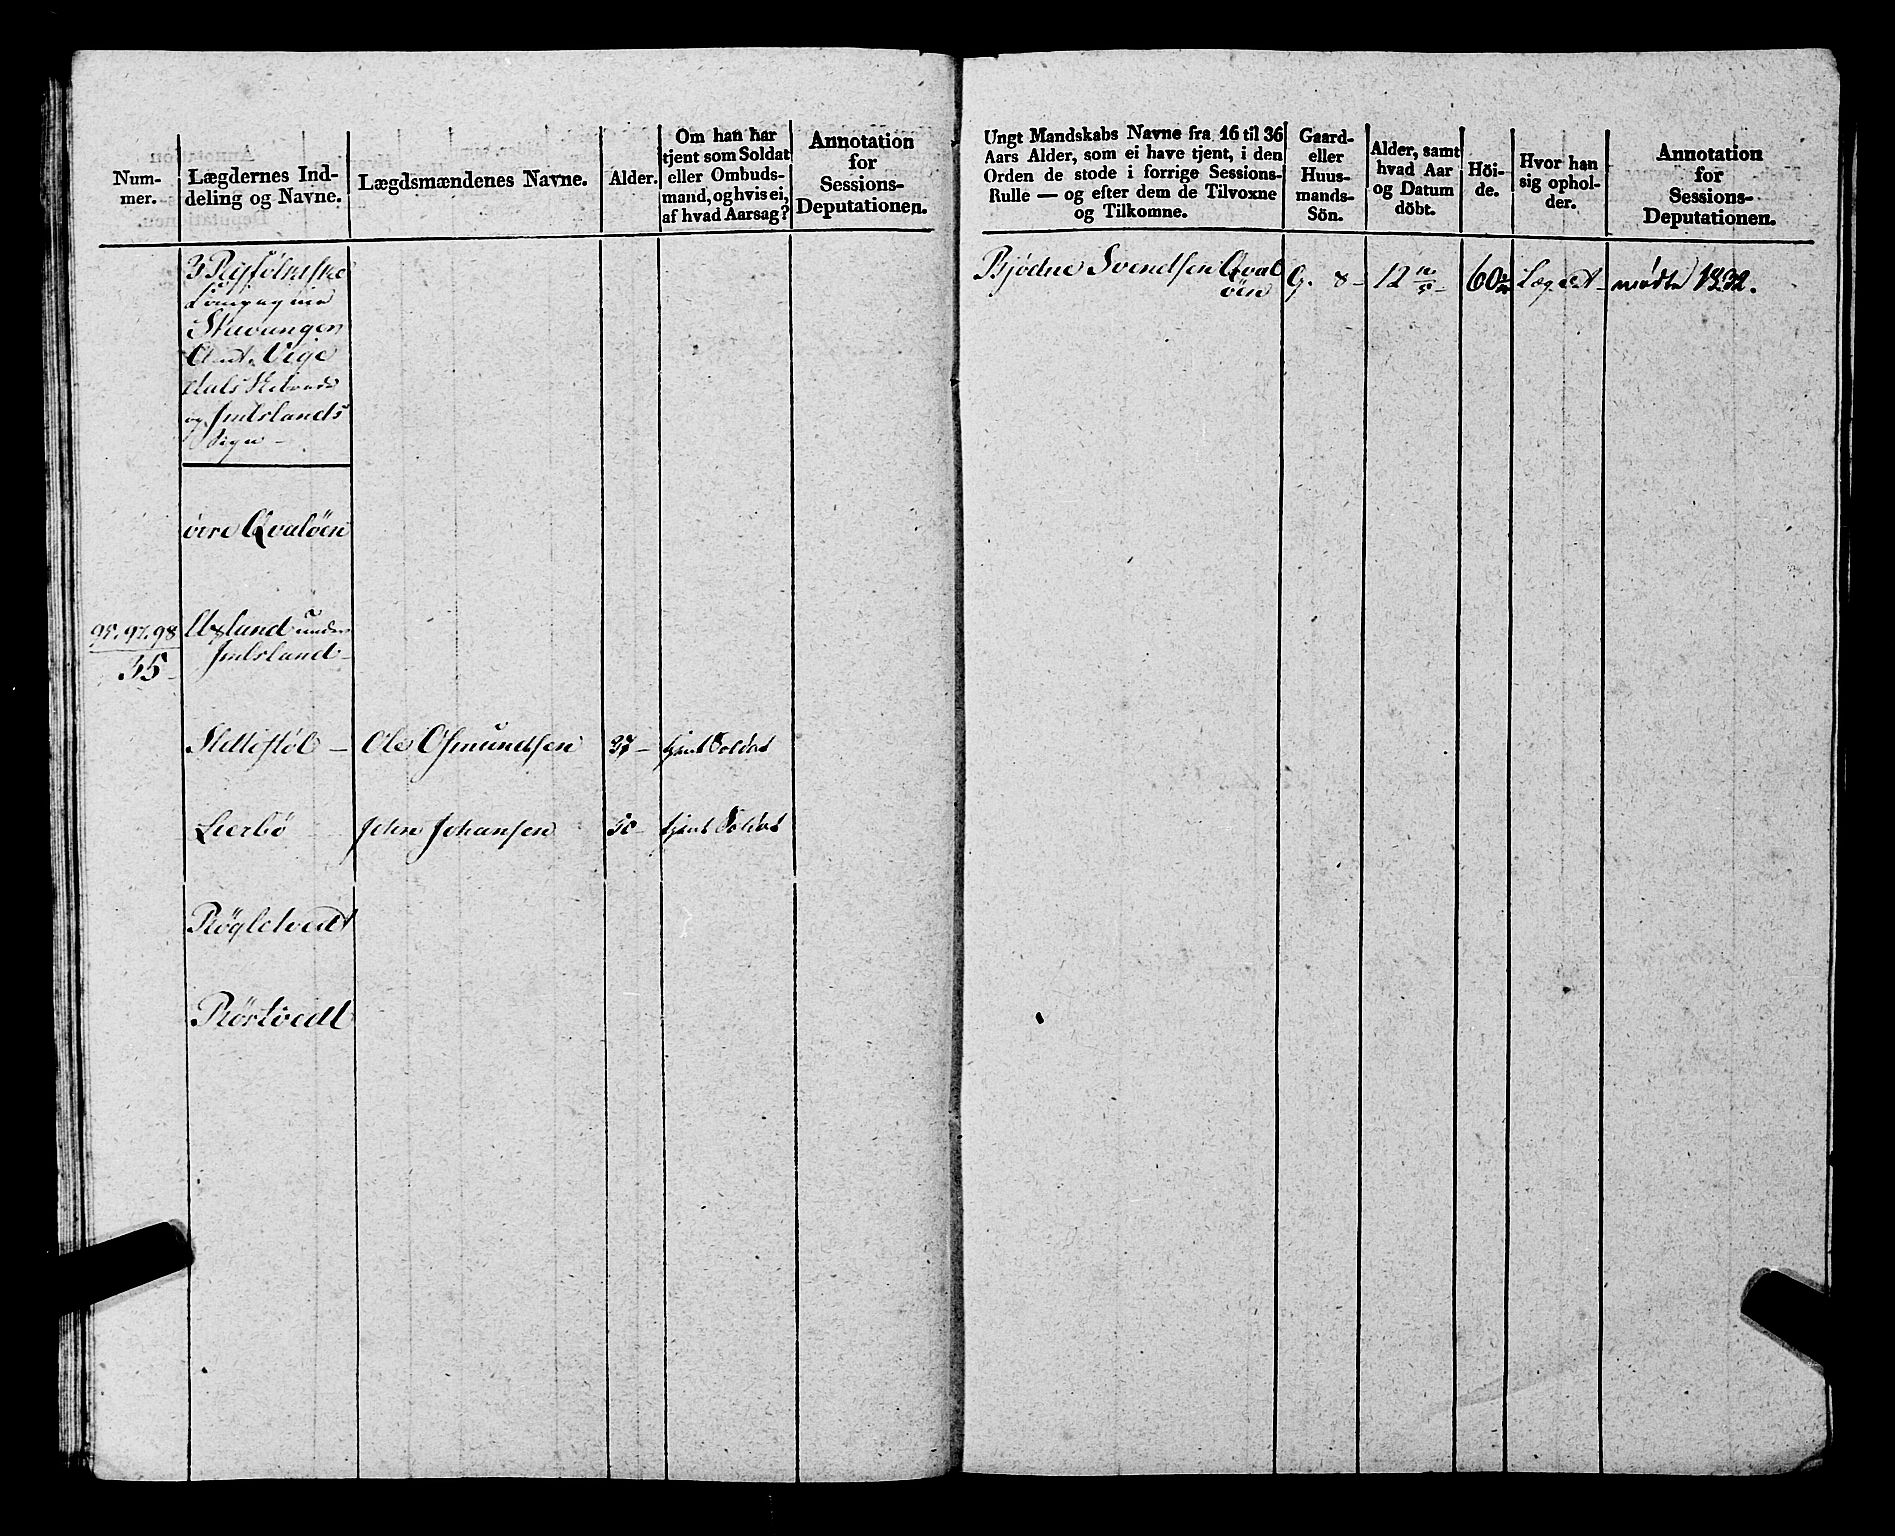 Num-
mer.
Lægdernes Ind-
deling og Navne.
Lægdsmændenes Navne.
Alder.
Om han har
tjent som Soldat
eller Ombuds-
mand, og hvis ei,
af hvad Aarsag?
Annotation
for
Sessions-
Deputationen.
3 Ryfölkeske
Compagnie
Stavanger
Amt. Vige
dals
og Imslands
Sogn -
övre Qvalöen
95. 97. 98
35
Axland under
Imsland
Ole Osmundsen
37 -
tjent Soldat
Leerbö
John Johansen
tjent Soldat
Rögletvedt
Rörtvedt
Ungt Mandskabs Navne fra 16 til 36
Aars Alder, som ei have tjent, i den
Orden de stode i forrige Sessions-
Rulle — og efter dem de Tilvoxne
og Tilkomne.
Gaard-
eller
Huus-
mands-
Sön.
Alder, samt
hvad Aar
og Datum
döbt.
Höi-
de.
Hvor han
sig ophol-
der.
Annotation
for
Sessions-
Deputationen.
Bjödne Svendsen Qval
öen
G. 8 -
12
60
Lægdet -
mödte 1832.